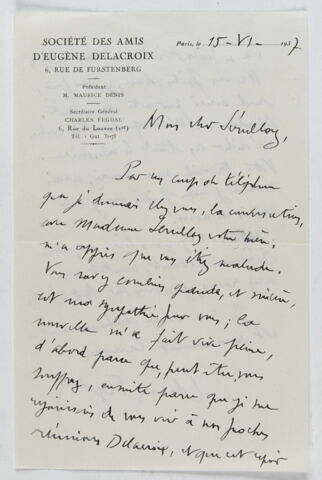 SOCIÉTÉ DES AMIS
D'EUGÈNE DELACROIX
6, RUE DE FURSTENBERG
Président
M. MAURICE DENIS
Secrétaire Général
CHARLES FEGDAL
6, Rue du Louvre (1er)
Tél. : Gut. 70-78
Paris, le 15-VI- 1937
Mon cher Sérullaz,
Par un coup de téléphone
que je donnais chez vous, la conversation,
avec Madame Sérullaz votre mère,
m'a appris que vous étiez malade.
Vous savez combien grande, et sincère,
est ma sympathie pour vous ; la
nouvelle m'a fait vive peine,
d'abord parce que, peut-être, vous
souffrez, ensuite parce que je me
réjouissais de vous voir à nos prochaines
réunions Delacroix, et que cet espoir